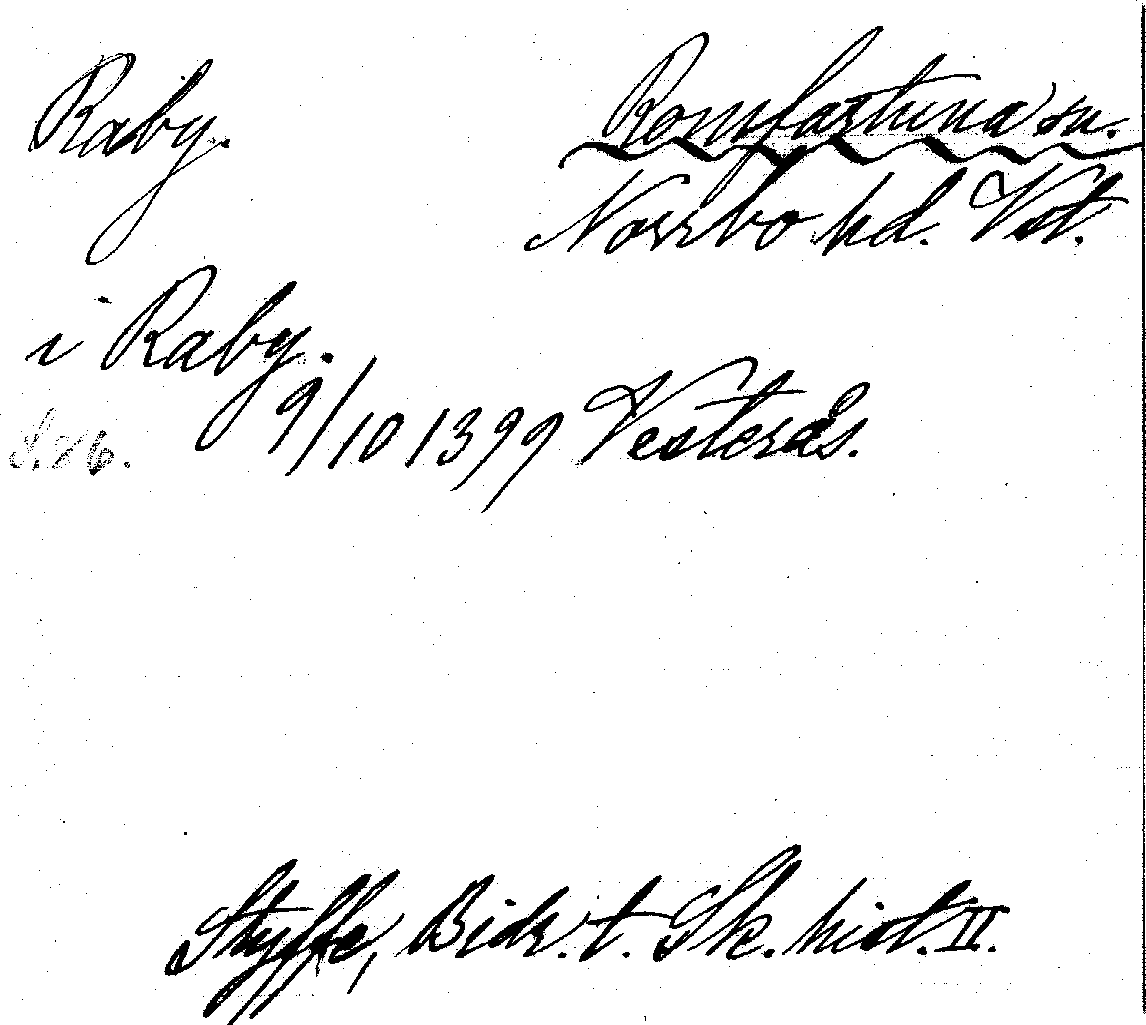 Raby.
Romfartuna sn.
Norrbo hd. Vst.
i Raby.
9/10 1399 Vesterås.
Styffe, Bidr. t. Sk. hist. II.